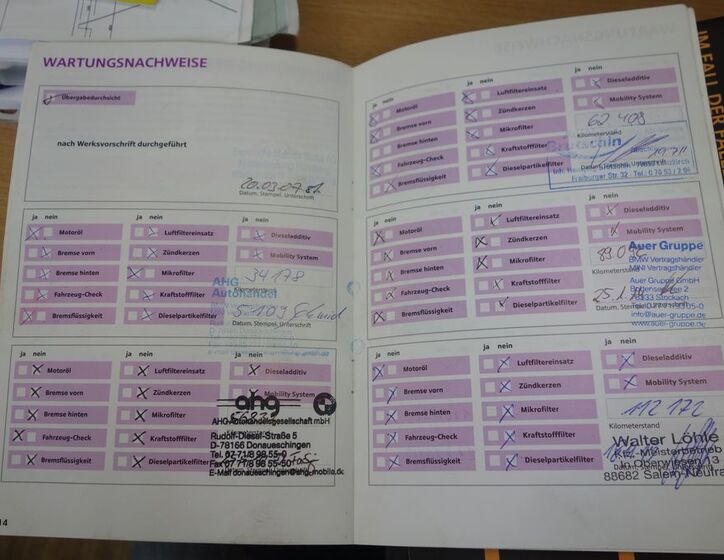 WARTUNGSNACHWEISE
Übergabedurchsicht
nach Werksvorschrift durchgeführt
20.03.07
Datum, Stempel, Unterschrift
ja nein
Motoröl
Bremse vorn
Bremse hinten
Fahrzeug-Check
Bremsflüssigkeit
ja nein
Luftfiltereinsatz
Zündkerzen
Mikrofilter
Kraftstofffilter
Dieselpartikelfilter
ja nein
Dieseladditiv
Mobility System
34178
Kilometerstand
AHG
Autohandel
Datum, Stempel, Unterschrift
ja nein
Motoröl
Bremse vorn
Bremse hinten
Fahrzeug-Check
Bremsflüssigkeit
ja nein
Luftfiltereinsatz
Zündkerzen
Mikrofilter
Kraftstofffilter
Dieselpartikelfilter
ja nein
Dieseladditiv
Mobility System
ahg
AHG Autohandelsgesellschaft mbH
Rudolf-Diesel-Straße 5
D-78166 Donaueschingen
Tel. 07 71/8 98 55-0
Fax 07 71/8 98 55-50
E-Mail donaueschingen@ahg-mobile.de
14
ja nein
Motoröl
Bremse vorn
Bremse hinten
Fahrzeug-Check
Bremsflüssigkeit
ja nein
Luftfiltereinsatz
Zündkerzen
Mikrofilter
Kraftstofffilter
Dieselpartikelfilter
ja nein
Dieseladditiv
Mobility System
62 408
Kilometerstand
Freiburger Str. 32
ja nein
Motoröl
Bremse vorn
Bremse hinten
Fahrzeug-Check
Bremsflüssigkeit
ja nein
Luftfiltereinsatz
Zündkerzen
Mikrofilter
Kraftstofffilter
Dieselpartikelfilter
ja nein
Dieseladditiv
Mobility System
Kilometerstand
Auer Gruppe
BMW Vertragshändler
MINI Vertragshändler
Auer Gruppe GmbH
78333 Stockach
Datum, Stempel, Unterschrift
info@auer-gruppe.de
www.auer-gruppe.de
ja nein
Motoröl
Bremse vorn
Bremse hinten
Fahrzeug-Check
Bremsflüssigkeit
ja nein
Luftfiltereinsatz
Zündkerzen
Mikrofilter
Kraftstofffilter
Dieselpartikelfilter
ja nein
Dieseladditiv
Mobility System
112 172
Kilometerstand
Walter Löhle
Kfz.-Meisterbetrieb
In Oberwiesen 13
88682 Salem-Neufra
IM FALL DER